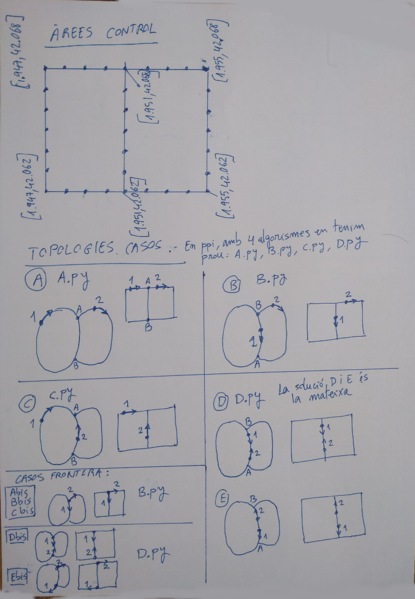 ÀREES CONTROL
[1.947,42.068]
[1.951,42.068]
[1.955,42.068]
[1.947,42.062]
[1.951,42.062]
[1.955,42.062]
TOPOLOGIES. CASOS.- En ppi, amb 4 algorismes en tenim
prou: A.py, B.py, C.py, D.py
A A.py
1 A 2 B
1 A 2 B
B B.py
B 2 1 A
2 1
C C.py
1 A 2 B
1 2
D D.py La solució D i E és
la mateixa
B 1 2 A
1 2
CASOS FRONTERA:
Abis
Bbis
Cbis
1 2
1 2
B.py
E
B 2 1 A
2 1
Dbis
1 2
1 2
D.py
Ebis